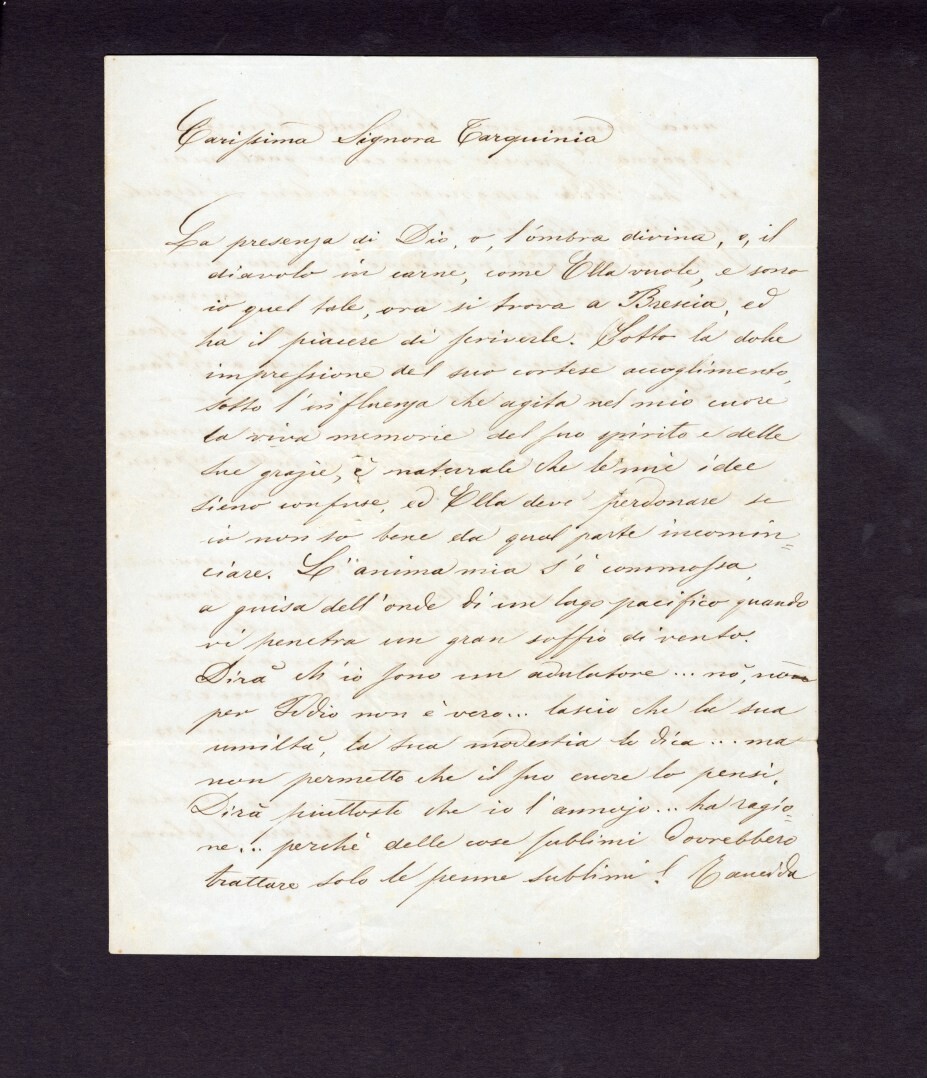 Carissima Signora Tarquinia
La presenza di Dio, o, l'ombra divina, o, il
diavolo in carne, come Ella vuole, e sono
io quel tale, ora si trova a Brescia, ed
ha il piacere di scriverle. Sotto la dolce
impressione del suo cortese accoglimento,
sotto l'influenza che agita nel mio cuore
la viva memorie del suo spirito e delle
sue grazie, è naturale che le mie idee
sieno confuse, ed Ella deve perdonare se
io non so bene da qual parte incomin=
ciare. L'anima mia s'è commossa
a guisa dell'onde di un lago pacifico quando
vi penetra un gran soffio di vento.
Dirà ch'io sono un adulatore... nò, nò
per Iddio non è vero... lascio che la sua
umiltà, la sua modestia lo dica... ma
non permetto che il suo cuore lo pensi.
Dirà piuttosto che io l'annojo... ha ragio=
ne... perchè delle cose sublimi dovrebbero
trattare solo le penne sublimi!